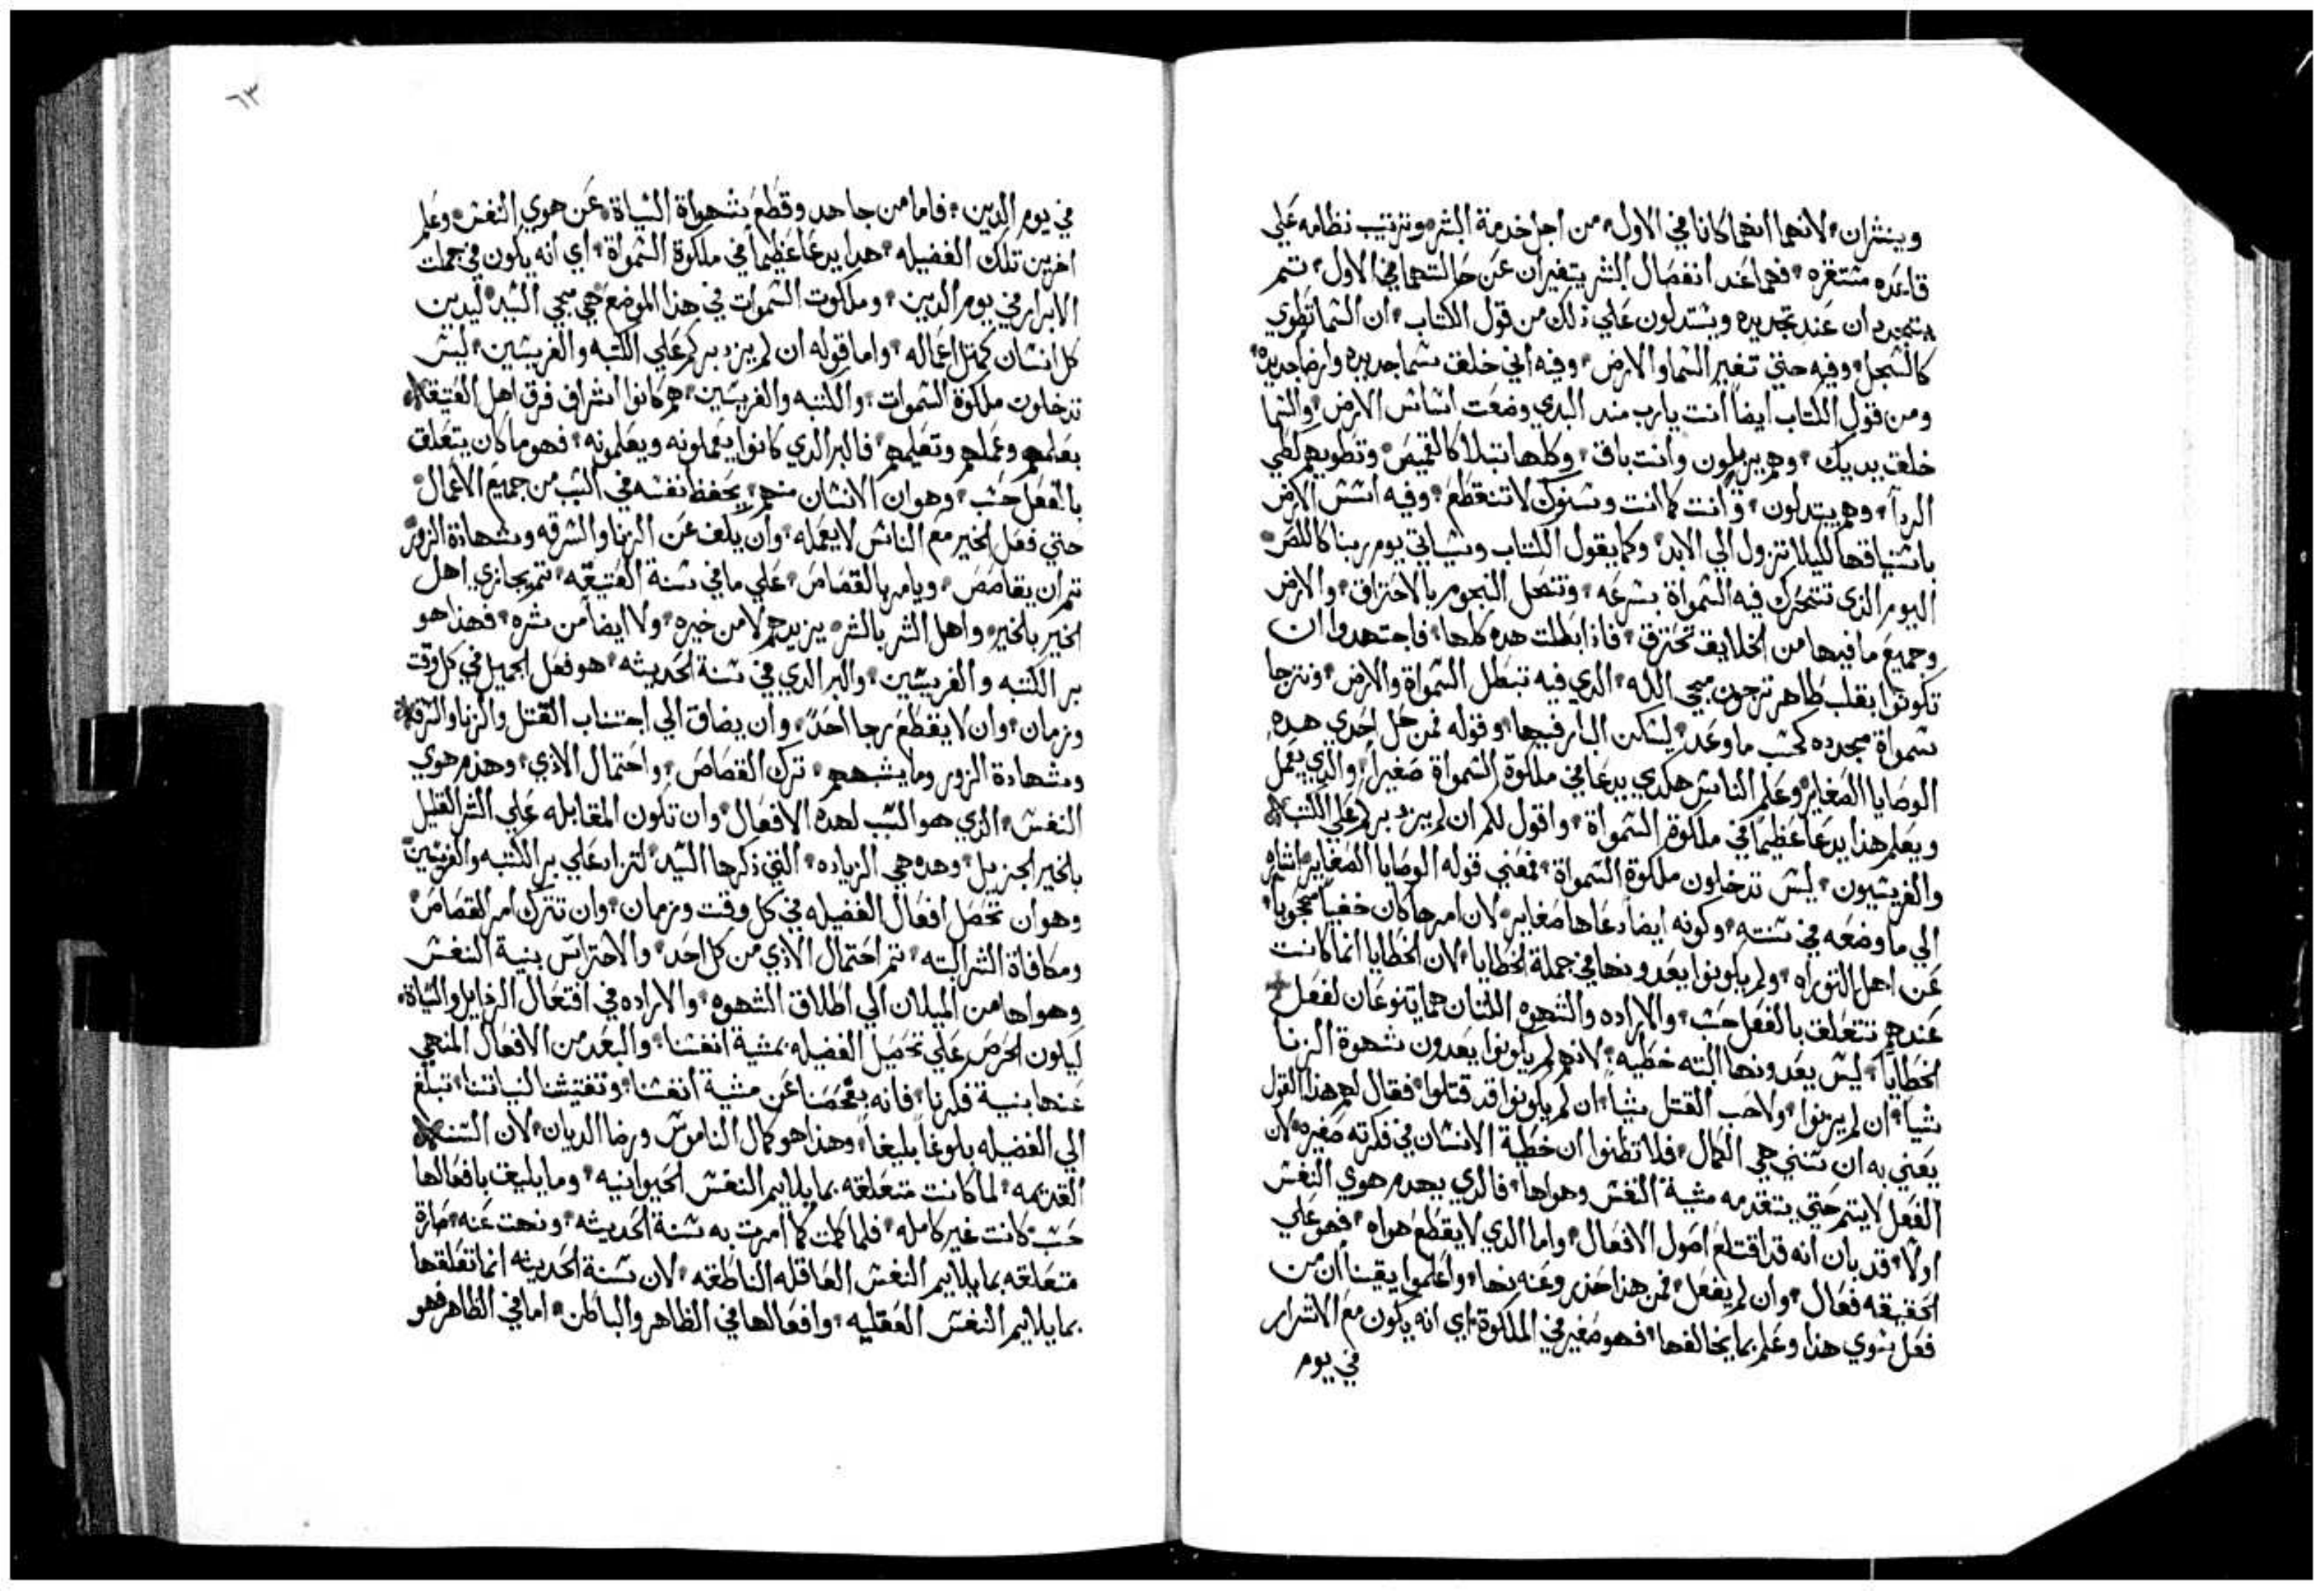 وينثران، لانهما انهما كانا في الاول، من اجل خدمة البشر، وترتيب نظامه علي
قاعده مستقره، فهما عند انفصال البشر يتغيران عن حالتهما في الاول، تم
يتجددان عند تجديده ويستدلون علي ذلك من قول الكتاب، ان السما تطوي
كالسجل، وفيه حتي تغير السما والارض، وفيه اني خلقت سما جديده وارضا جديده،
ومن قول الكتاب ايضا انت يارب مند البدي وضعت اساس الارض، والسما
خلقت يديك، وهم يزولون وانت باق، وكلها تبلا كالقميص، وتطويهم كطي
الردآ، وهم يبتدلون، وانت كما انت وسنوك لا تنقطع، وفيه اسس الارض
باستياقها لكيلا تزول الي الابد، وكما يقول الكتاب وسياتي يوم ربنا كاللص،
اليوم الذي تتحرك فيه السمواة بسرعه، وتنحل النجوم بالاحتراق، والارض
وجميع ما فيها من الخلايق تحترق، فاذا بطلت هده كلها، فاجتهدوا ان
تكونوا بقلب طاهر ترجون مجي الله، الدي فيه تبطل السمواة والارض، ونترجا
سمواة مجدده كحسب ما وعد، ليسكن البار فيها، وقوله فمن حل احدي هده
الوصايا الصغاير، وعلم الناس هكدي يدعا في ملكوة السمواة صغيرا، والدي يعمل
ويعلم هدا يدعا عظيما في ملكوة السمواة، واقول لكم ان لم يزد بركم علي الكتبه
والفريسيون، ليس تدخلون ملكوة السمواة، فمعني قوله الوصايا الصغاير، اشاره
الي ما وضعه في سنته، وكونه ايضا دعاها صغاير، لان امرها كان خفيا محجوبا،
عن اهل التوراه، ولم يكونوا يعدونها في جملة الخطايا، لان الخطايا انما كانت
عندهم تتعلق بالفعل حسب، والاراده والشهوه اللتان هما يتنوعان لفعل
الخطايا، ليس يعدونها البته خطيه، لانهم لم يكونوا يعدون شهوة الزنا
شيا، ان لم يزنوا، ولا حب القتل شيا، ان لم يكونوا قد قتلوا، فقال لهم هذا القول
يعني به ان سنتي هي الكمال، فلا تظنوا ان خطية الانسان في فكرته صغيره، لان
الفعل لا يتم حتي يتقدمه مشية النفس وهواها، فالدي يهدم هوي النفس
اولا، قد بان انه قد اقتلع اصول الافعال، واما الدي لا يقطع هواه، فهو علي
الحقيقه فعال، وان لم يفعل، فمن هذا حذر وعنه نها، واعلموا يقينا ان من
فعل سوي هذا وعلم بما يخالفها، فهو صغير في الملكوة، اي انه يكون مع الاشرار
في يوم
٦٣
في يوم الدين، فاما من جاهد وقطع شهواة السياة، عن هوي النفس، وعلم
اخرين تلك الفضيله، هدا يدعا عظيما في ملكوة السمواة، اي انه يكون في جملت
الابرار في يوم الدين، وملكوت السموات في هذا الموضع هي مجي السيد، ليدين
كل انسان كمثل اعماله، واما قوله ان لم يزد بركم علي الكتبه والفريسين، ليس
تدخلون ملكوة السموات، والكتبه والفريسين، هم كانوا اشراف فرق اهل العتيقه
بعلمهم وعملهم وتعليمهم، فالبر الدي كانوا يعملونه ويعلمونه، فهو ما كان يتعلق
بالفعل حسب، وهو ان الانسان منهم، يحفظ نفسه في السبت من جميع الاعمال،
حتي فعل الخير مع الناس لا يعمله، وان يكف عن الزنا والسرقه وشهادة الزور
تم ان يقاصص، ويامر بالقصاص، علي ما في سنة العتيقه، تم يجازي اهل
الخير بالخير، واهل الشر بالشر، يزيدهم لا من خيره، ولا ايضا من شره، فهذا هو
بر الكتبه والفريسين، والبر الدي في سنة الحديثه، هو فعل الجميل في كل وقت
وزمان، وان لا يقطع رجا احد، وان يضاق الي اجتناب القتل والزنا والسرقه
وشهادة الزور وما يشبههم، ترك القصاص، واحتمال الاذي، وهذم هوي
النفس، الذي هو السبب لهده الافعال، وان تكون المقابله علي الشر القليل
بالخير الجزيل، وهده هي الزياده، التي ذكرها السيد، لتزاد علي بر الكتبه والفريسين
وهو ان تحصل افعال الفضيله في كل وقت وزمان، وان تترك امر القصاص،
ومكافاة الشر البته، تم احتمال الاذي من كل احد، والاحتراس بنية النفس
وهواها من الميلان الي اطلاق الشهوه، والاراده في افتعال الرذايل والسياة،
ليكون الحرص علي تحصل الفضيله بمشية انفسنا، والبعد من الافعال المنهي
عنها بنية فكرنا، فانه بفحصنا عن مشية انفسنا، وتفتيشنا لنياتنا، نبلغ
الي الفضيله بلوغا بليغا، وهذا هو كمال الناموس ورضا الديان، لان السنه
القديمه، لما كانت متعلقه بما يلايم النفس الحيوانيه، وما يليق بافعالها
حسب، كانت غير كامله، فلما كملت كما امرت به سنة الحديثه، ونهت عنه، صارة
متعلقه بما يلايم النفس العاقله الناطقه، لان سنة الحديثه انما تعلقها
بما يلايم النفس العقليه، وافعالها في الظاهر والباطن، اما في الظاهر فهو